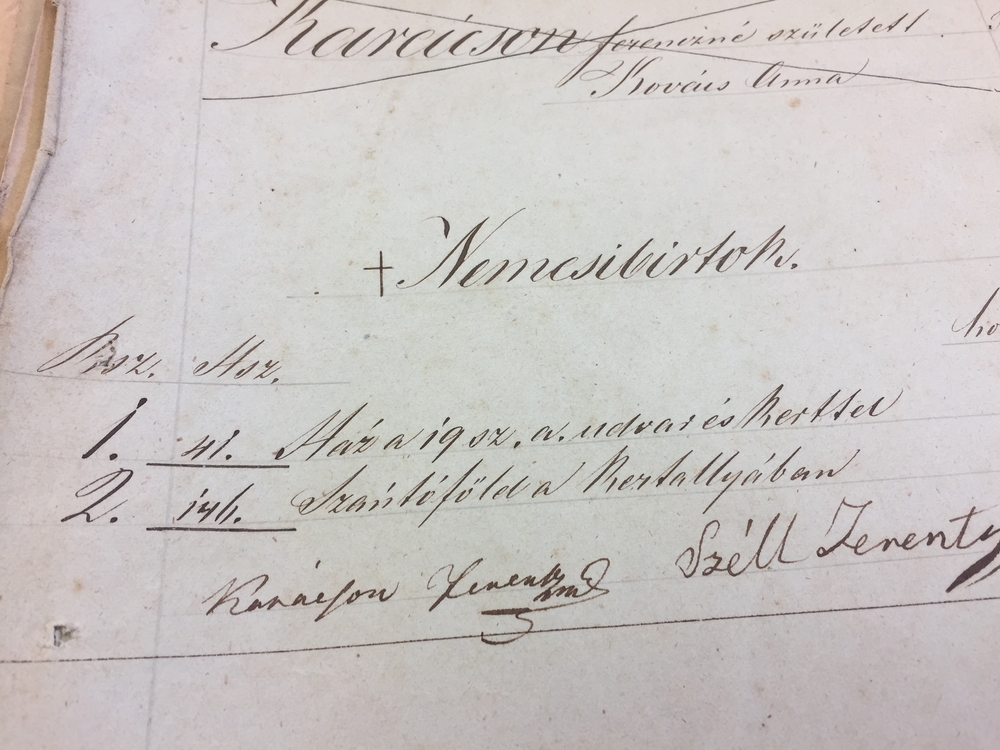 Karácson ferenczné született
Kovács Anna
† Nemesibirtok.
Rsz. Hsz.
1. 41. Ház a 19 sz. a. udvar és kerttel
2. 146. Szántóföld a kertallyában
Karácson Ferentzné Széll Ferentz